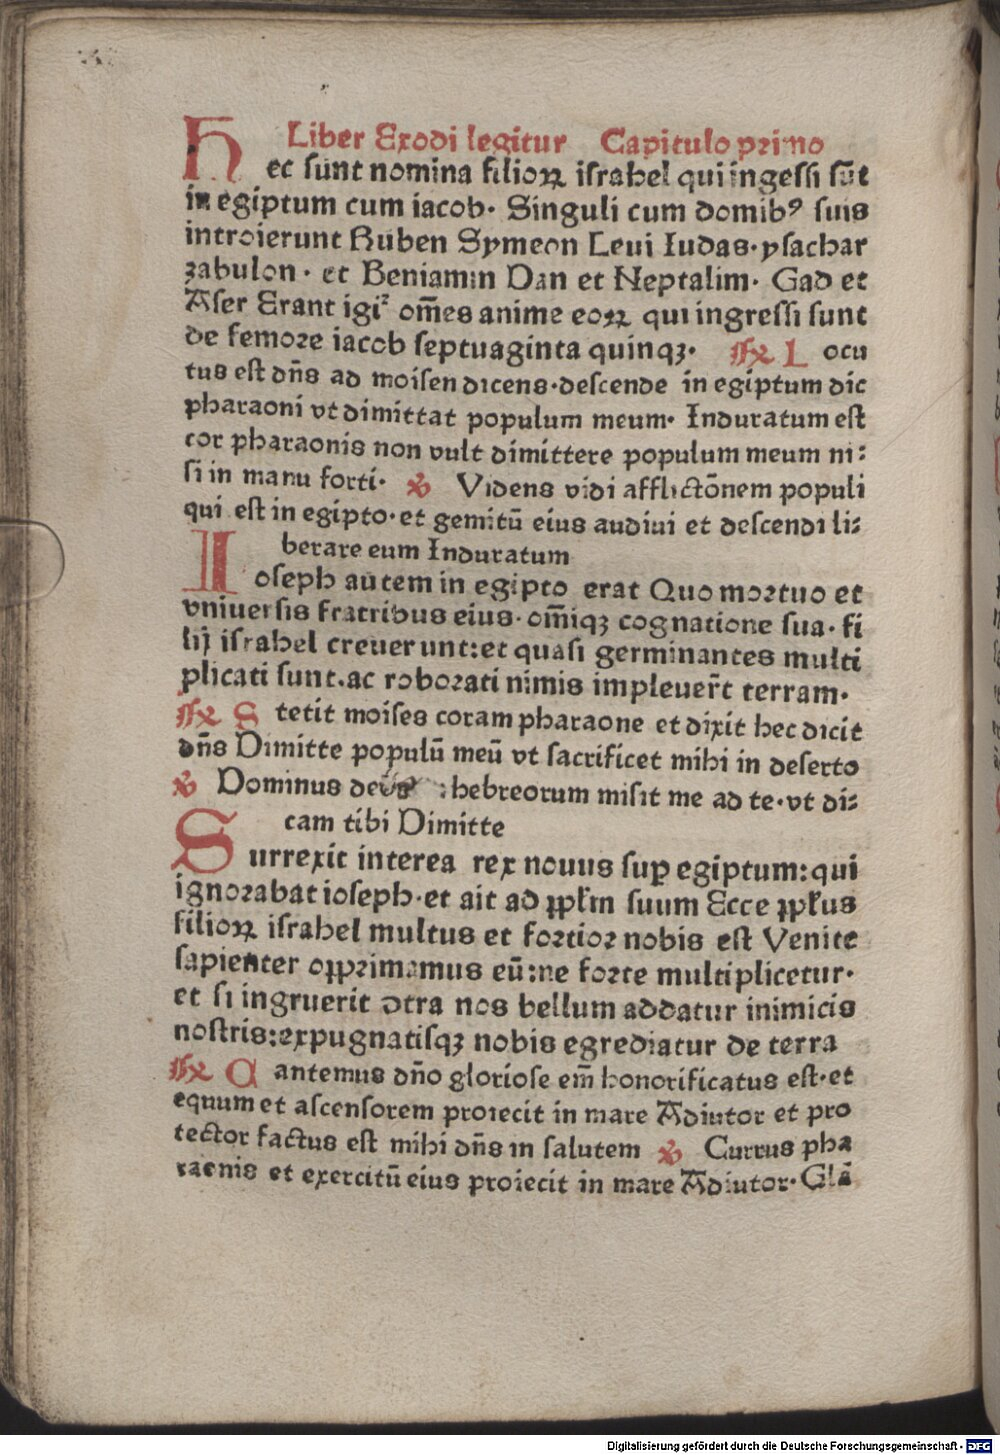 Liber Exodi legitur Capitulo primo
Hec sunt nomina filioꝝ israhel qui ingessi sūt
in egiptum cum iacob. Singuli cum domibꝰ suis
introierunt Ruben Symeon Leui Iudas. ysachar
zabulon. et Beniamin Dan et Neptalim. Gad et
Aser Erant igiᷣ om̄es anime eoꝝ qui ingressi sunt
de femore iacob septuaginta quinqꝫ. ℟ Locu
tus est dn̄s ad moisen dicens.descende in egiptum dic
pharaoni vt dimittat populum meum. Induratum est
cor pharaonis non vult dimittere populum meum ni:
si in manu forti. ℣ Videns vidi afflictōnem populi
qui est in egipto.et gemitū eius audiui et descendi li:
berare eum Induratum
Ioseph autem in egipto erat Quo mortuo et
vniuersis fratribus eius.om̄iqꝫ cognatione sua. fi
lij israhel creuerunt:et quasi germinantes multi
plicati sunt.ac roborati nimis impleuer̄t terram.
℟ Stetit moises coram pharaone et dixit hec dicit
dn̄s Dimitte populū meū vt sacrificet mihi in deserto
℣ Dominus deus :hebreorum misit me ad te.vt di:
cam tibi Dimitte
Surrexit interea rex nouus suꝑ egiptum:qui
ignorabat ioseph.et ait ad ppl̄m suum Ecce ppl̄us
filioꝝ israhel multus et fortior nobis est Venite
sapienter opprimamus eū:ne forte multiplicetur.
et si ingruerit ↄtra nos bellum addatur inimicis
nostris:expugnatisqꝫ nobis egrediatur de terra
℟ Cantemus dn̄o gloriose em̄ honorificatus est.et
equum et ascensorem proiecit in mare Adiutor et pro
tector factus est mihi dn̄s in salutem ℣ Currus pha
raonis et exercitū eius proiecit in mare Adiutor. Glā
Digitalisierung gefördert durch die Deutsche Forschungsgemeinschaft - DFG